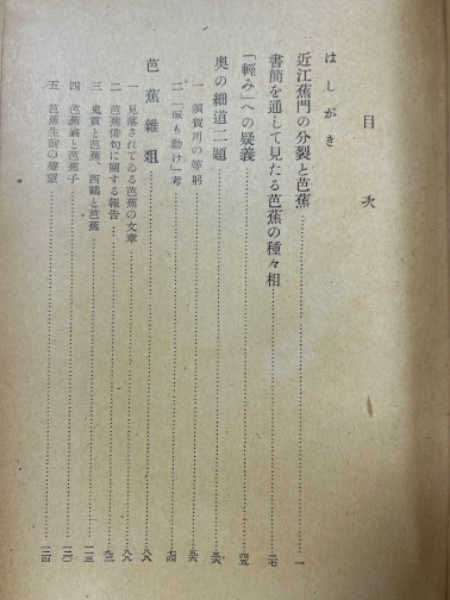 目次
はしがき
近江蕉門の分裂と芭蕉……一
書簡を通して見たる芭蕉の種々相……二七
「輕み」への疑義……四五
奥の細道二題……五六
一 須賀川の等躬……五六
二 「塚も動け」考……七四
芭蕉雜俎……八八
一 見落されてゐる芭蕉の文章……八八
二 芭蕉俳句に關する報告……九三
三 鬼貫と芭蕉、西鶴と芭蕉……一一三
四 芭蕉翁と芭蕉子……一二〇
五 芭蕉生前の聲望……一二四